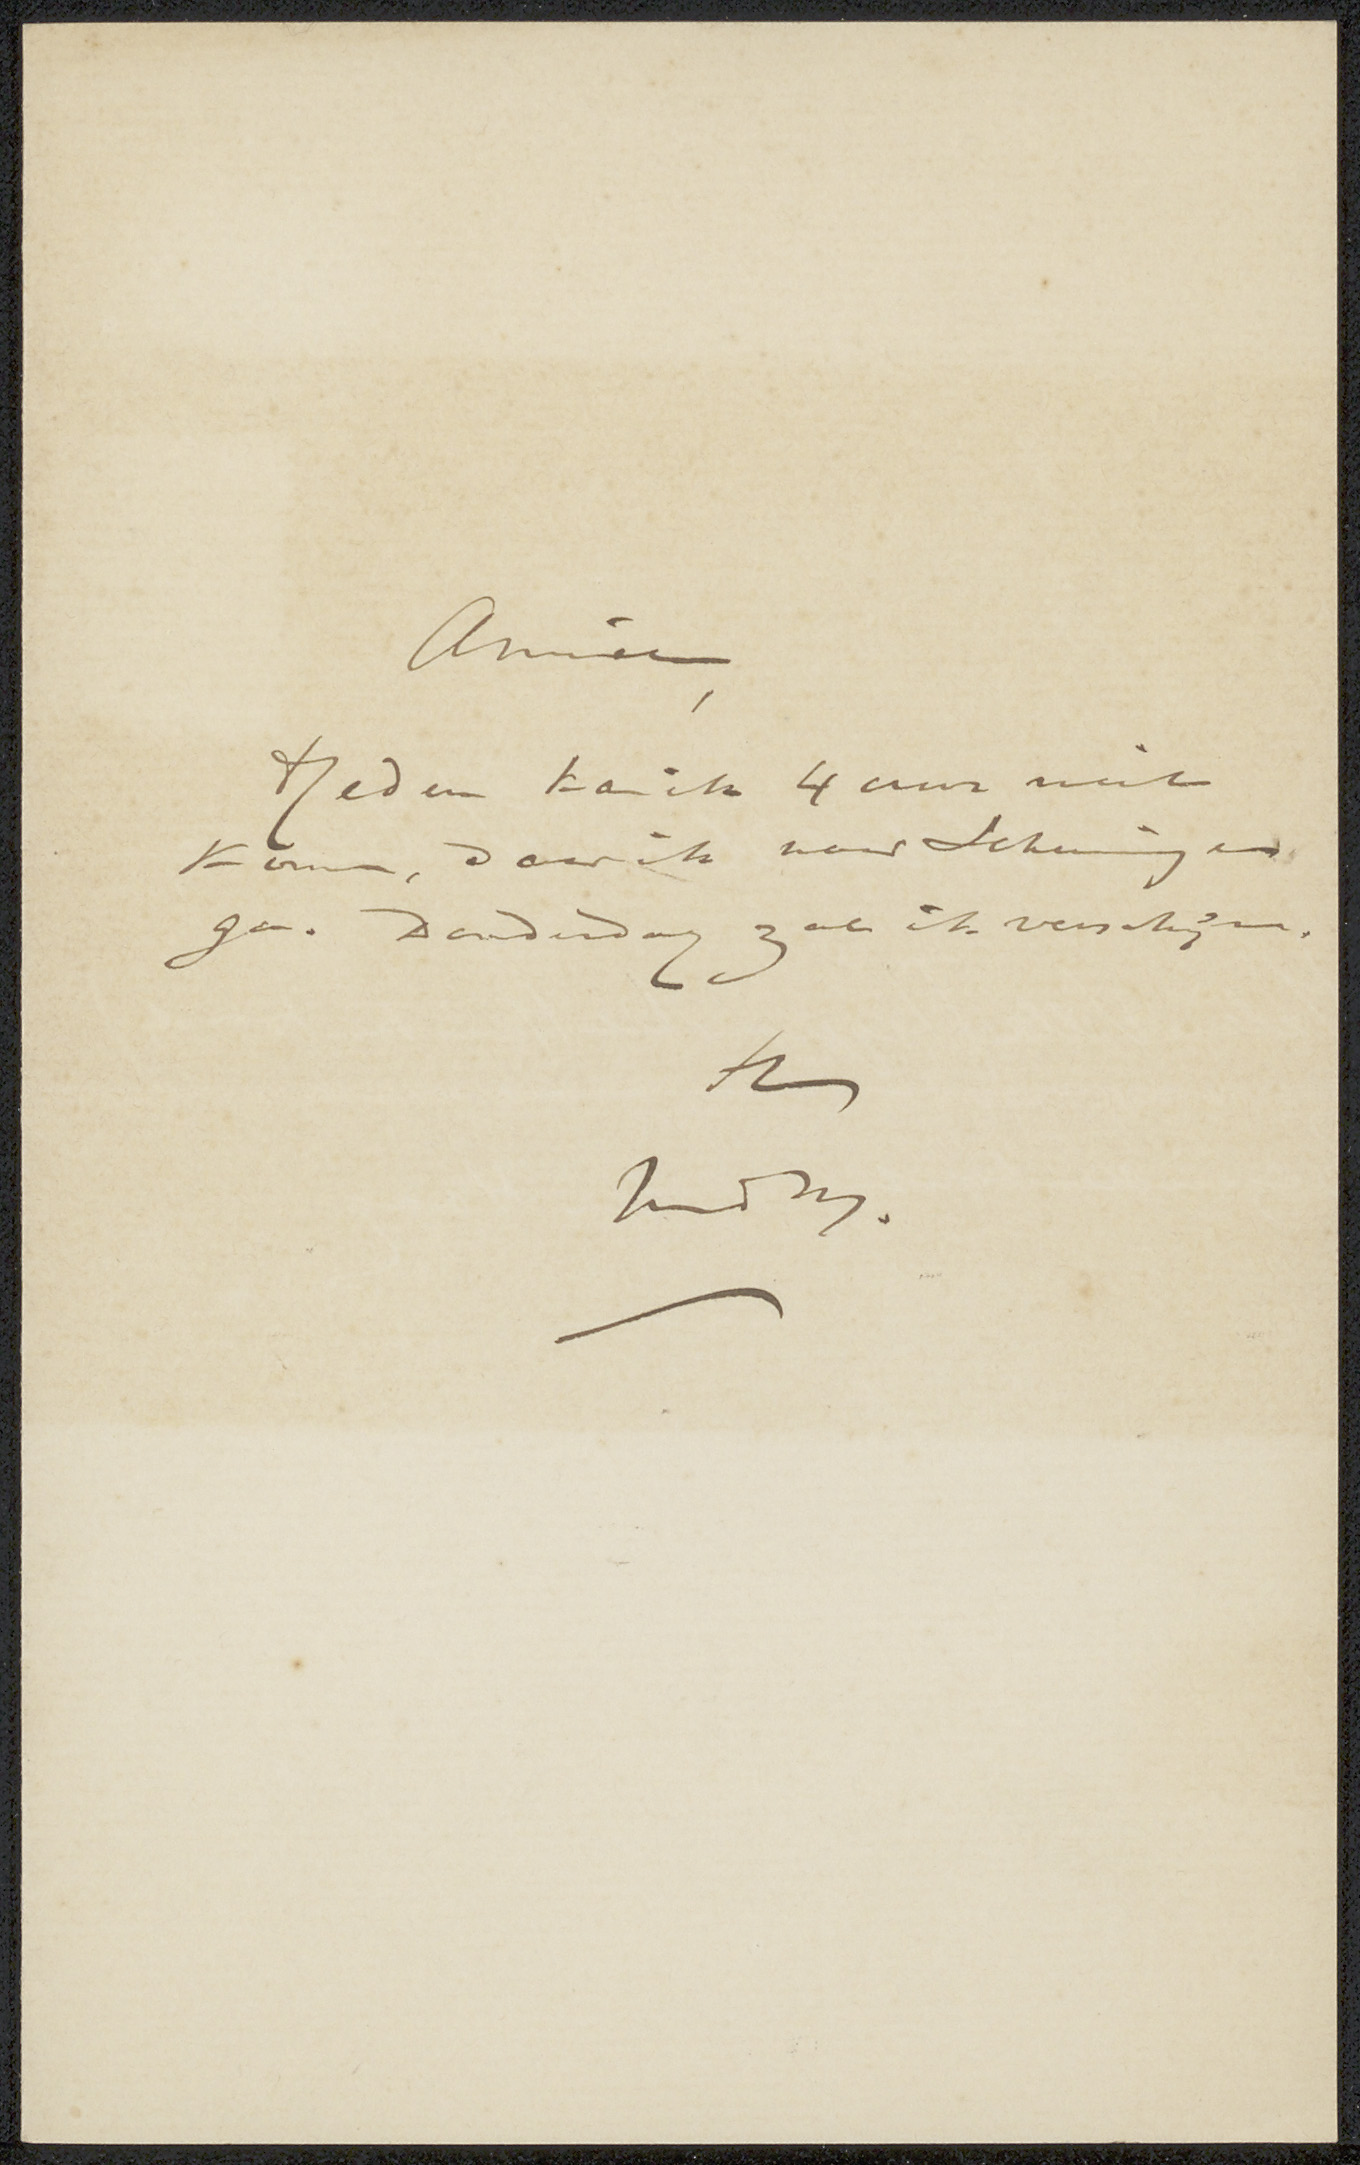 Amice,
Heden ka ik 4 uur niet
komen, daar ik naar Scheveningen
ga. Donderdag zal ik verschijnen.